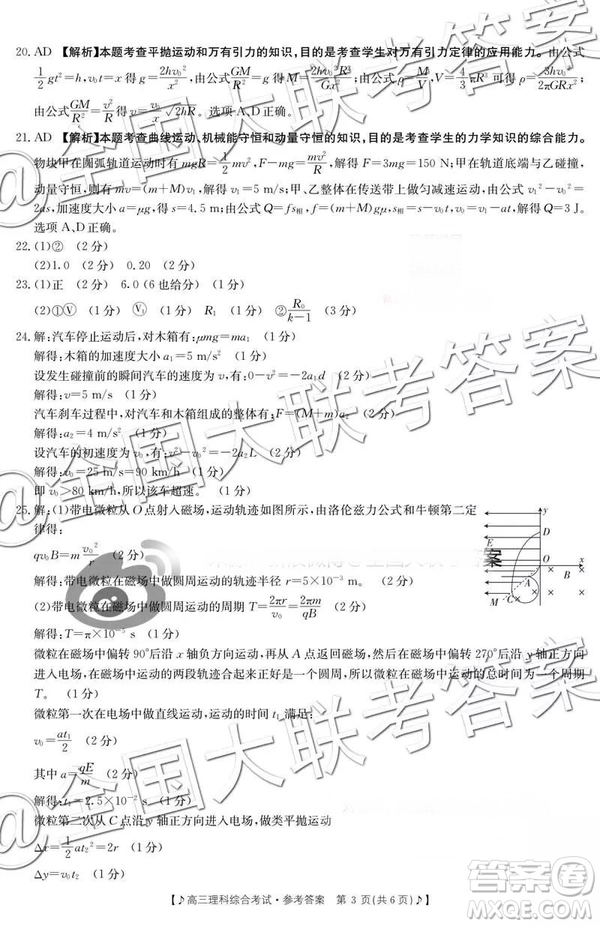 20. AD 【解析】本题考查平抛运动和万有引力的知识,目的是考查学生对万有引力定律的应用能力。由公式
1/2 gt²=h,v₀t=x 得 g=2hv₀²/x²,由公式 GM/R²=g 得 M=2hv₀²R²/Gx²,由公式 ρ=M/V,V=4/3 πR³ 可得 ρ=3hv₀²/2πGRx²,
由公式 GM/R²=v²/R 得 v=v₀/x √2hR。选项 A、D 正确。
21. AD 【解析】本题考查曲线运动、机械能守恒和动量守恒的知识,目的是考查学生的力学知识的综合能力。
物块甲在圆弧轨道运动时有 mgR=1/2 mv²,F-mg=mv²/R 得 F=3mg=150 N;甲在轨道底端与乙碰撞,
动量守恒,则有 mv=(m+m)v₁;甲、乙整体在传送带上做匀减速运动,由公式 v₁²-v₀²=
2as,加速度大小 a=μg,得 s=4.5 m;由公式 Q=fs相,f=2μmg,s相=s-v₀t,v₀=v₁-at 得 Q=3 J。
选项 A、D 正确。
22. (1)② (2分)
(2)1.0 (2分) 0.20 (2分)
23. (1)正 6.0(6也给分) (2分)
(2)①Ⓥ Ⓥ₁ R₁ (2分) ②R₀/k-1 (3分)
24. 解:汽车停止运动后,对木箱有:μmg=ma₁ (2分)
解得:木箱的加速度大小 a₁=5 m/s² (1分)
设发生碰撞前的瞬间汽车的速度为 v,有:0-v²=-2a₁d (2分)
解得:v=5 m/s (1分)
汽车刹车过程中,对汽车和木箱组成的整体,有:F=(M+m)a₂ (2分)
解得:a₂=4 m/s² (1分)
设汽车的初速度为 v₀,有:v²-v₀²=-2a₂L (2分)
解得:v₀=25 m/s=90 km/h (1分)
即 v₀>80 km/h,所以该车超速。 (1分)
25. 解:(1)带电微粒从 O 点射入磁场,运动轨迹如图所示,由洛伦兹力公式和牛顿第二定
律得:
qv₀B=m v₀²/r (2分)
解得:带电微粒在磁场中做圆周运动的轨迹半径 r=5×10⁻³ m。 (1分)
(2)带电微粒在磁场中做圆周运动的周期 T=2πr/v₀=2πm/qB (2分)
解得:T=π×10⁻⁵ s (1分)
微粒在磁场中偏转90°后沿 x 轴负方向运动,再从 A 点返回磁场偏转270°后沿 y 轴正方向
进入电场,在磁场中运动的两段轨迹合起来正好是一个圆周,所以微粒在磁场中运动的总时间为
T。 (1分)
微粒第一次在电场中做直线运动,运动时间 t₁ 满足:
v₀=at₁/2 (2分)
其中 a=qE/m (2分)
解得:t₁=2.5×10⁻² s (1分)
微粒第二次从 C 点沿 y 轴正方向进入电场,做类平抛运动
Δx=1/2 at₂²=2r (2分)
Δy=v₀t₂ (2分)
y
D
E
O
x
A
M
C
♪高三理科综合考试·参考答案 第 3 页(共 6 页)♪
@全国大联考答案
@全国大联考答案
答案圈
MXQE.COM